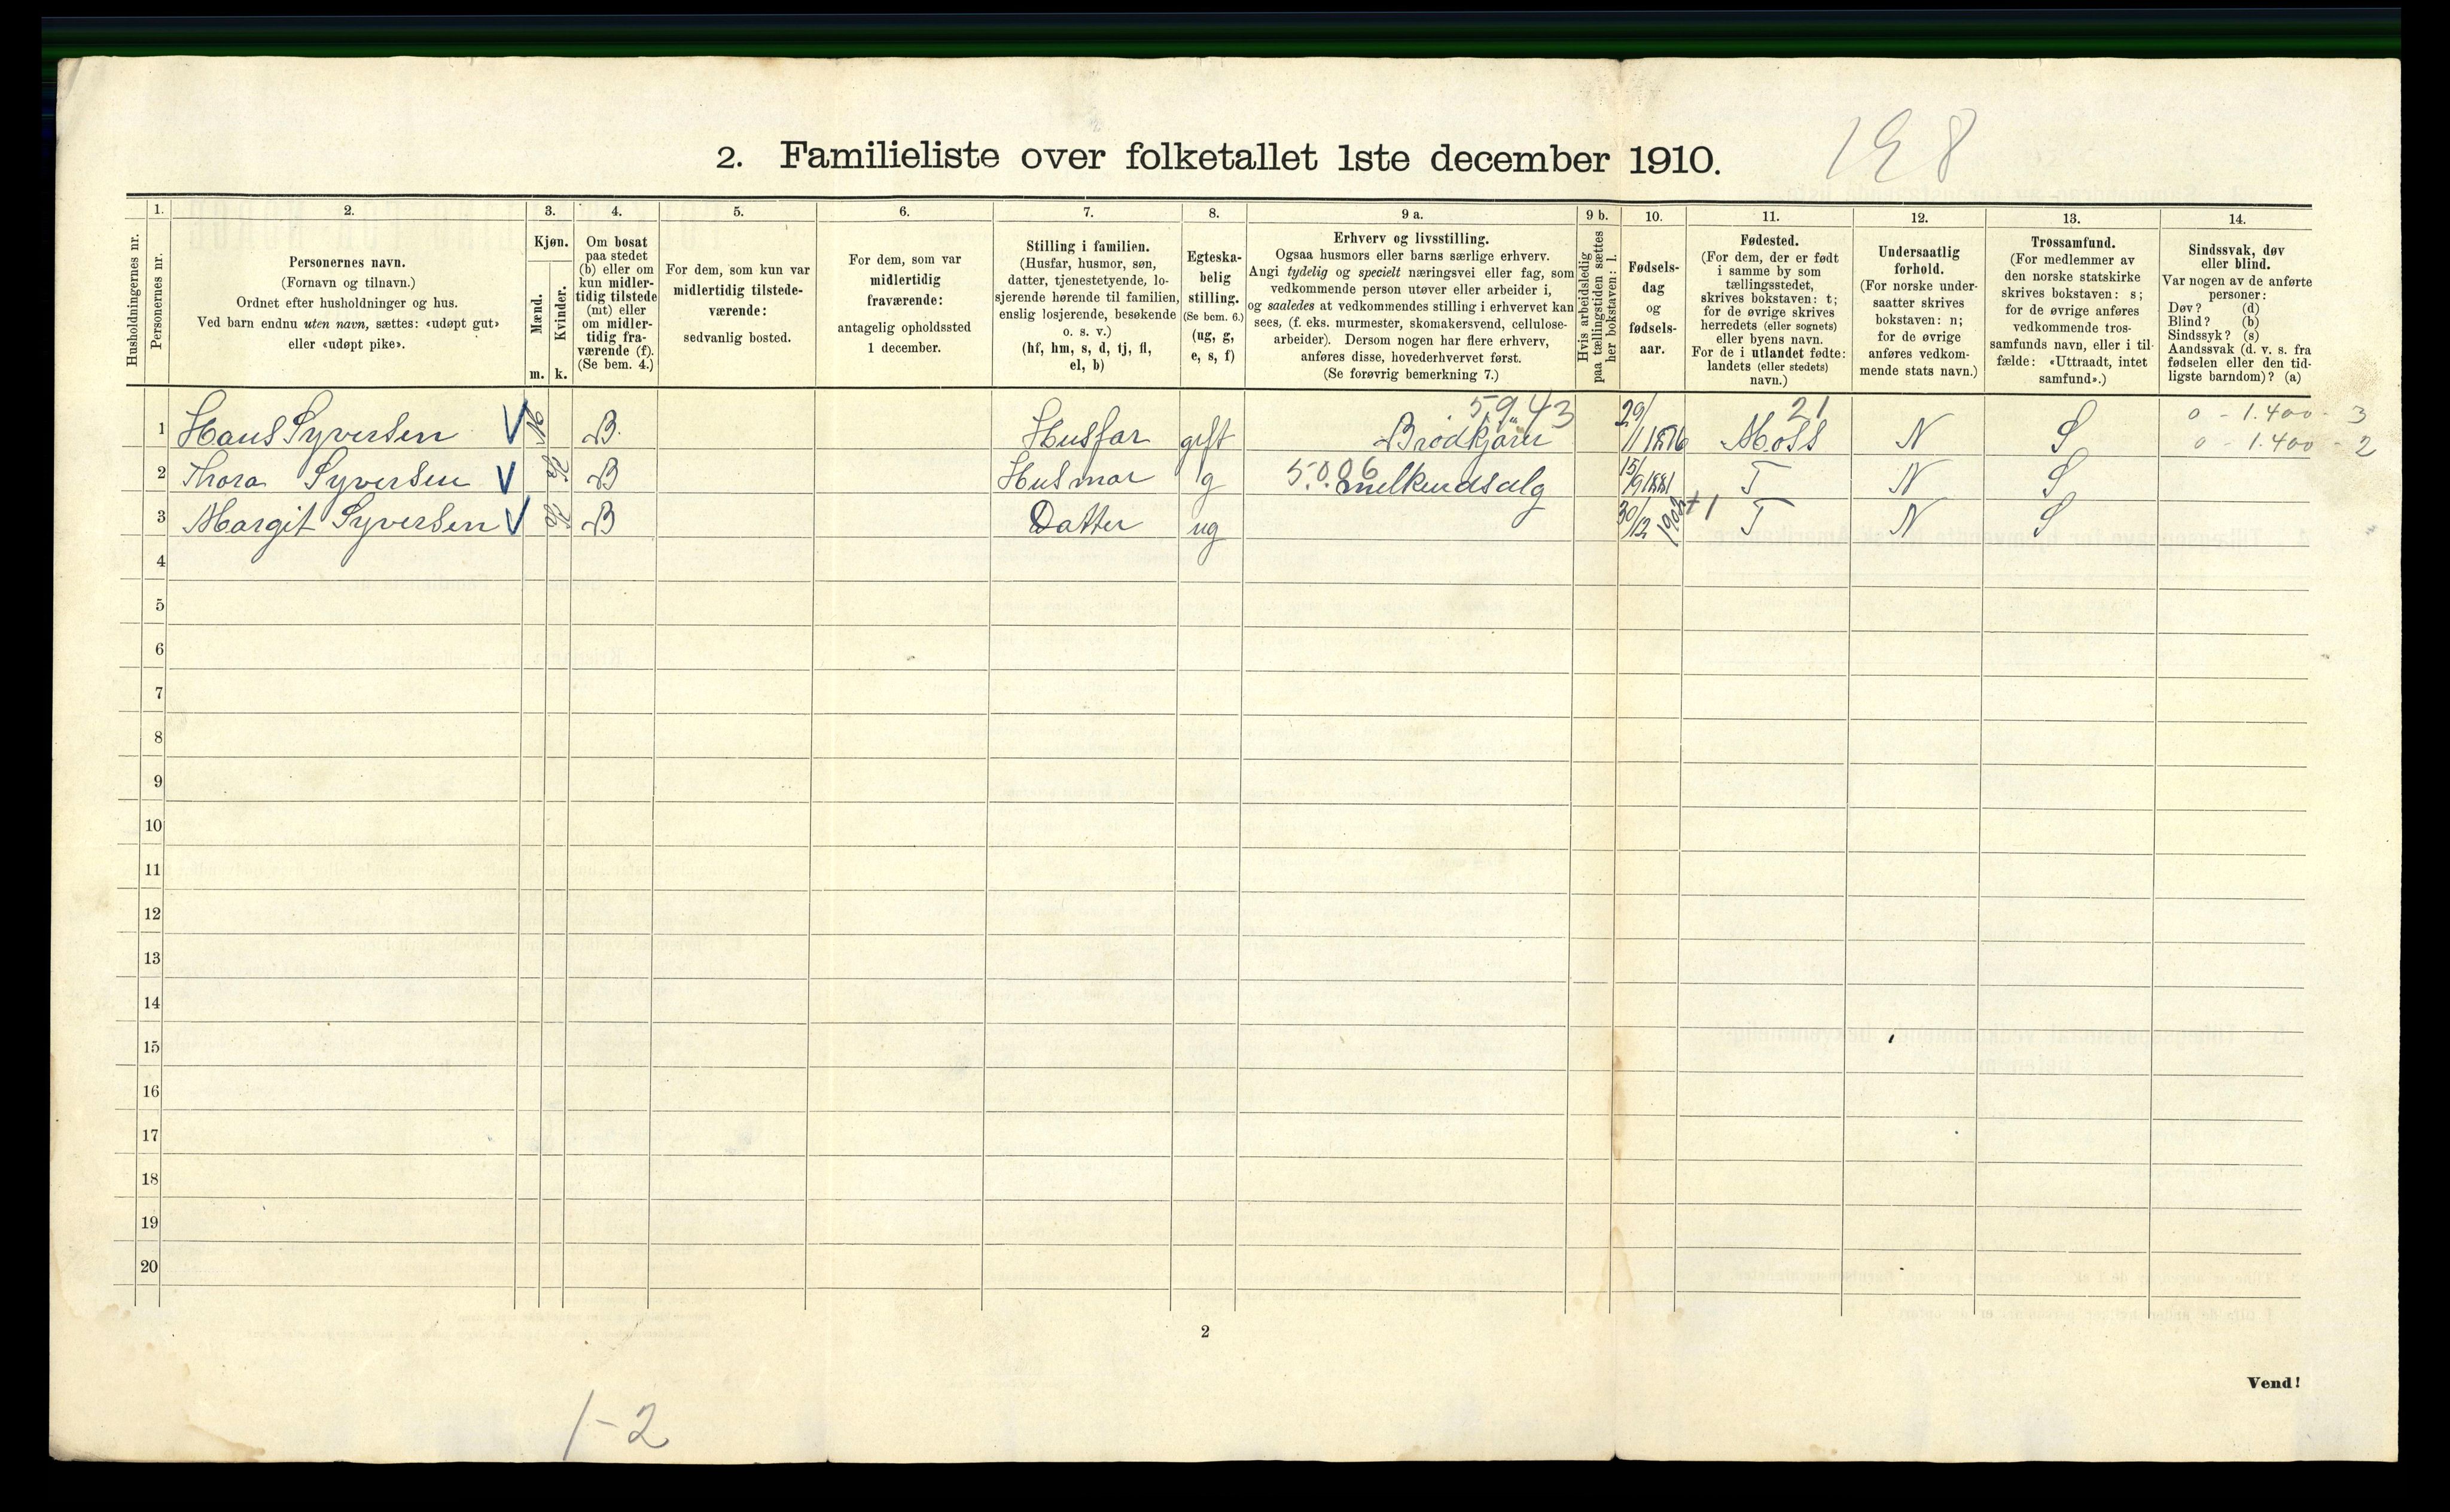 198
2. Familieliste over folketallet 1ste december 1910.
Husholdningernes nr.
1.
Personernes nr.
2.
Personernes navn.
(Fornavn og tilnavn.)
Ordnet efter husholdninger og hus.
Ved barn endnu uten navn, sættes: «udøpt gut»
eller «udøpt pike».
3.
Kjøn.
Mænd.
Kvinder.
m. k.
4.
Om bosat
paa stedet
(b) eller om
kun midler-
tidig tilstede
(mt) eller
om midler-
tidig fra-
værende (f).
(Se bem. 4.)
5.
For dem, som kun var
midlertidig tilstede-
værende:
sedvanlig bosted.
6.
For dem, som var
midlertidig
fraværende:
antagelig opholdssted
1 december.
7.
Stilling i familien.
(Husfar, husmor, søn,
datter, tjenestetyende, lo-
sjerende hørende til familien,
enslig losjerende, besøkende
o. s. v.)
(hf, hm, s, d, tj, fl,
el, b)
8.
Egteska-
belig
stilling.
(Se bem. 6.)
(ug, g,
e, s, f)
9 a.
Erhverv og livsstilling.
Ogsaa husmors eller barns særlige erhverv.
Angi tydelig og specielt næringsvei eller fag, som
vedkommende person utøver eller arbeider i,
og saaledes at vedkommendes stilling i erhvervet kan
sees, (f. eks. murmester, skomakersvend, cellulose-
arbeider). Dersom nogen har flere erhverv,
anføres disse, hovederhvervet først.
(Se forøvrig bemerkning 7.)
9 b.
Hvis arbeidsledig
paa tællingstiden sættes
her bokstaven: l.
10.
Fødsels-
dag
og
fødsels-
aar.
11.
Fødested.
(For dem, der er født
i samme by som
tællingsstedet,
skrives bokstaven: t;
for de øvrige skrives
herredets (eller sognets)
eller byens navn.
For de i utlandet fødte:
landets (eller stedets)
navn.)
12.
Undersaatlig
forhold.
(For norske under-
saatter skrives
bokstaven: n;
for de øvrige
anføres vedkom-
mende stats navn.)
13.
Trossamfund.
(For medlemmer av
den norske statskirke
skrives bokstaven: s;
for de øvrige anføres
vedkommende tros-
samfunds navn, eller i til-
fælde: «Uttraadt, intet
samfund».)
14.
Sindssvak, døv
eller blind.
Var nogen av de anførte
personer:
Døv? (d)
Blind? (b)
Sindssyk? (s)
Aandssvak (d. v. s. fra
fødselen eller den tid-
ligste barndom)? (a)
5943 21 0 - 1.400 - 3
1 Hans Syversen V M B. Husfar gift Brödkjörer 29/11 1876 Moss N S 0 - 1.400 - 2
2 Thora Syversen V K B Husmor g 5.0.06 melkeudsalg 15/9 1881 T N S
3 Margit Syversen V K B Datter ug 30/12 1902 +1 T N S
4
5
6
7
8
9
10
11
12
13
14
15
16
17
18
19
20
2
Vend!
1-2